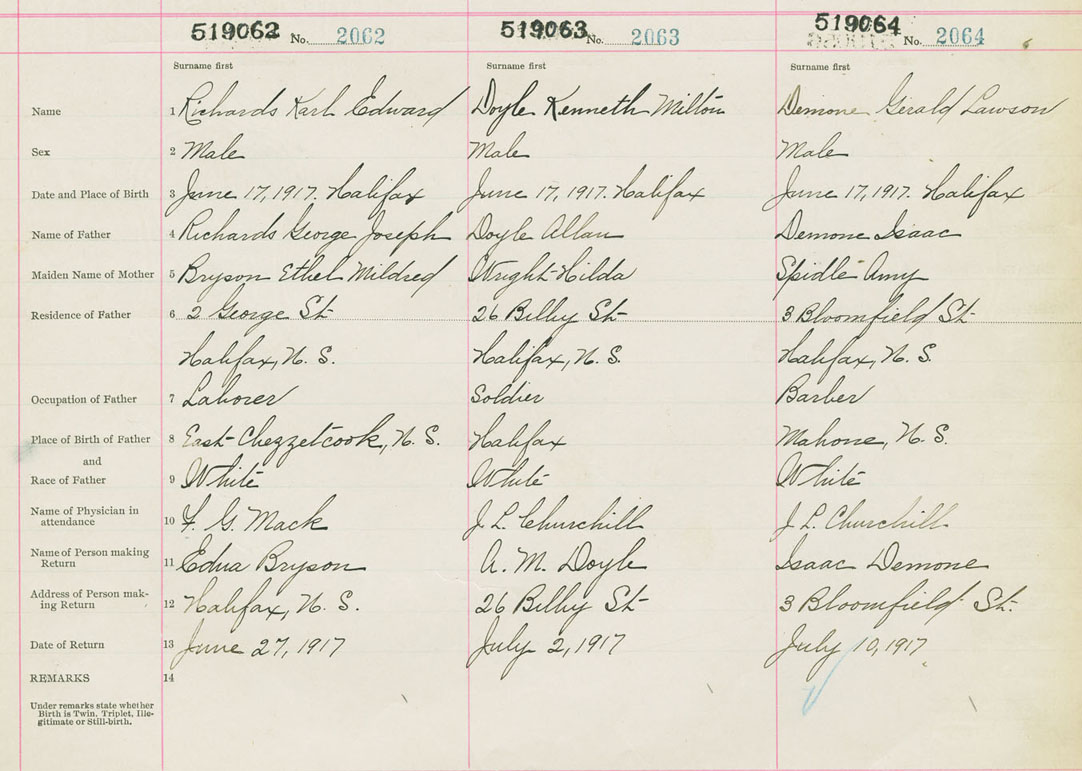 519062 No. 2062 519063 No. 2063 519064 No. 2064
Surname first Surname first Surname first
Name 1 Richards Karl Edward Doyle Kenneth Milton Demone Gerald Lawson
Sex 2 Male Male Male
Date and Place of Birth 3 June 17, 1917. Halifax June 17, 1917. Halifax June 17, 1917. Halifax
Name of Father 4 Richards George Joseph Doyle Allan Demone Isaac
Maiden Name of Mother 5 Bryson Ethel Mildred Wright Hilda Spidle Amy
Residence of Father 6 2 George St 26 Bilby St 3 Bloomfield St
Halifax, N. S. Halifax, N. S. Halifax, N. S.
Occupation of Father 7 Laborer Soldier Barber
Place of Birth of Father 8 East Chezzetcook, N. S. Halifax Mahone, N. S.
and
Race of Father 9 White White White
Name of Physician in
attendance 10 F. G. Mack J. L. Churchill J. L. Churchill
Name of Person making
Return 11 Edna Bryson A. M. Doyle Isaac Demone
Address of Person mak-
ing Return 12 Halifax, N. S. 26 Bilby St 3 Bloomfield St.
Date of Return 13 June 27, 1917 July 2, 1917 July 10, 1917
REMARKS 14
Under remarks state whether
Birth is Twin, Triplet, Ille-
gitimate or Still-birth.